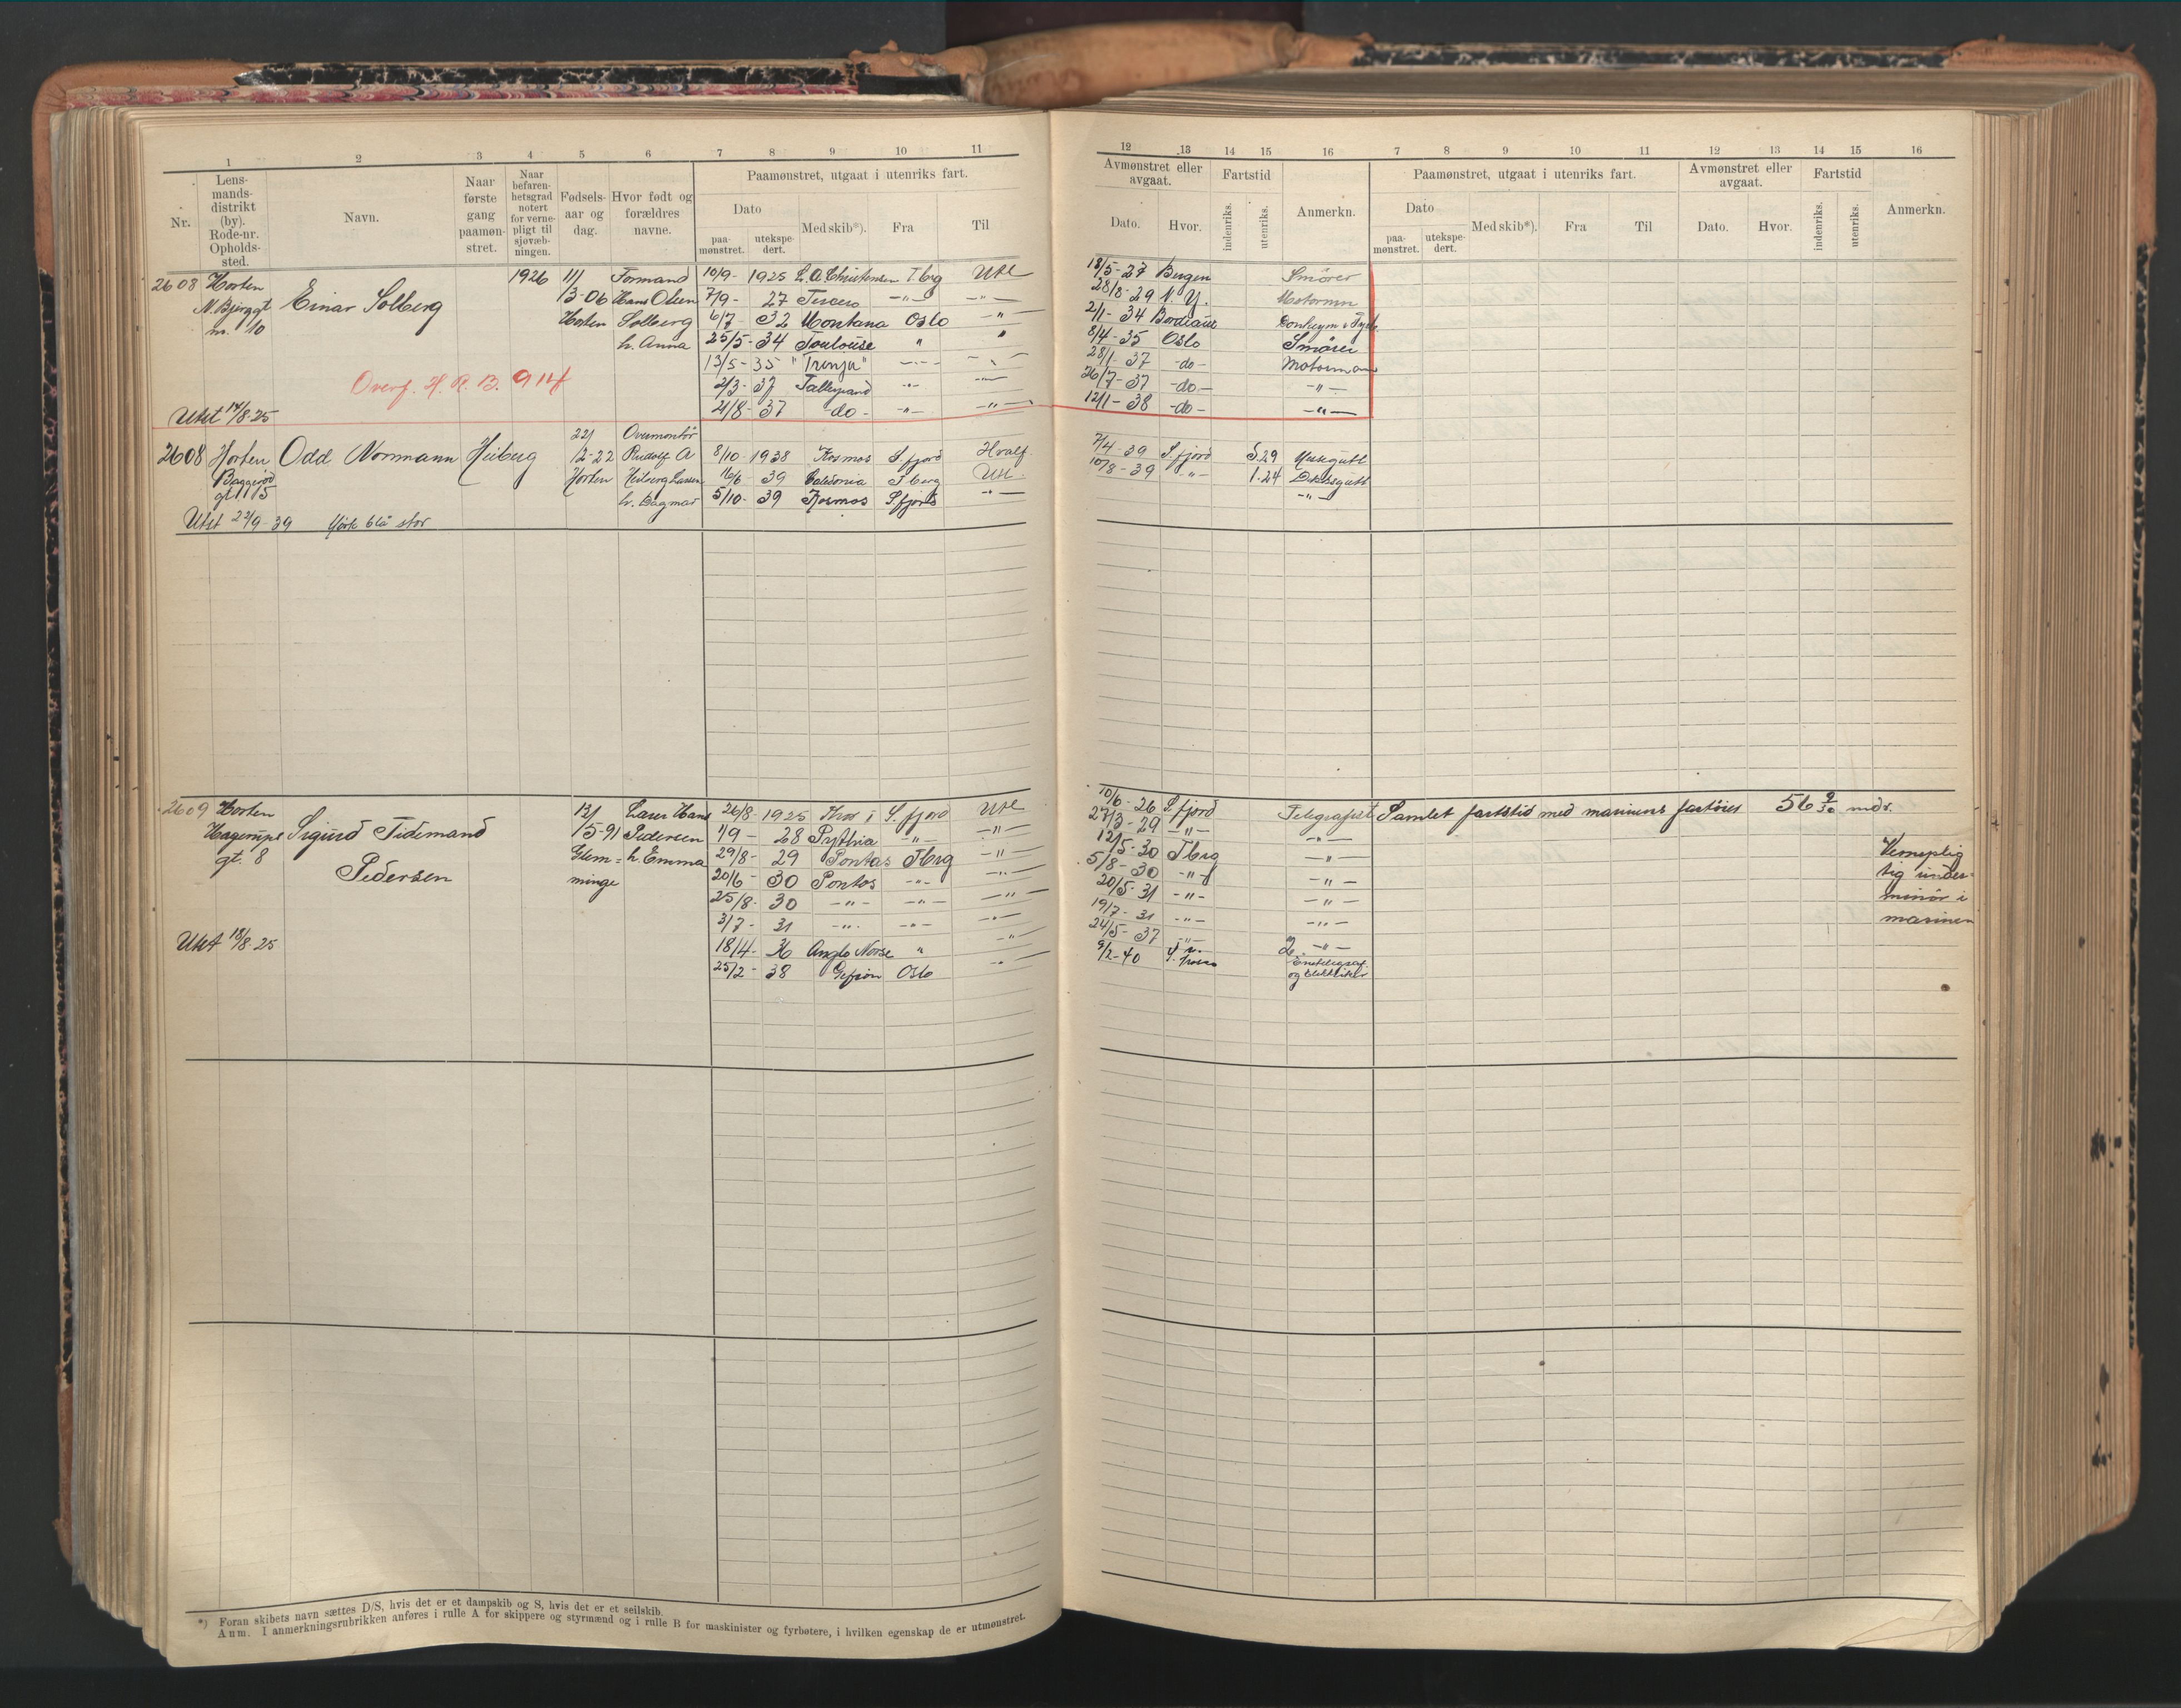 1 2 3 4 5 6 7 8 9 10 11
Nr.
Lens-
mands-
distrikt
(by).
Rode-nr.
Opholds-
sted.
Navn.
Naar
første
gang
paamøn-
stret.
Naar
befaren-
hetsgrad
notert
for verne-
pligt til
sjøvæb-
ningen.
Fødsels-
aar og
dag.
Hvor født og
forældres
navne.
Paamønstret, utgaat i utenriks fart.
Dato
paa-
mønstret.
utekspe-
dert.
Med skib*).
Fra
Til
2608 Horten Einar Solberg 1926 11/ Formand 10/9- 1925 L. A. Christensen Tbrg Utl
N. Bjerggt /3-06 Hans Olsen 7/9- 27 -"- -"-
nr. 10 Horten Solberg 6/7- 32 Montana Oslo -"-
h. Anna 25/5-34 Toulouse " "
13/5-35 "Tronja" -"- -"-
Overf. H. R. B. 914
2/3-37 Talleyrand -"- -"-
Utst 14/8-25 21/8-37 -do- -"- -"-
22/ Overmontør
2608 Horten Odd Normann Heiberg /2-22 Rudolf A 8/10-1938 Kosmos S fjord Hvalf.
Baggerød Horten Heiberg Larsen 16/6 39 Caledonia Tberg Utl.
gt 15 h. Dagmar 5/10-39 Kosmos Sfjord -"-
Utst 22/9-39 Mørk blå stor
2609 Horten Sigurd Tidemand 12/ Laur Hans 26/8 1925 S. fjord Utl
Hagemps /5-91 Pedersen 1/9- 28 Pythia -"- -"-
gt. 8 Pedersen Glem= h. Emma 29/8- 29 Pontos Tbrg -"-
minge 20/6- 30 Pontos -"- -"-
25/8- 30 -"- -"- -"-
3/7- 31 -"- -"- -"-
Utst 18/8-25 18/4- 36 Anglo Norse " -"-
25/2- 38 Gefion Oslo -"-
*) Foran skibets navn sættes D/S, hvis det er et dampskib og S, hvis det er et seilskib.
Anm. I anmerkningsrubrikken anføres i rulle A for skippere og styrmænd og i rulle B for maskinister og fyrbøtere, i hvilken egenskap de er utmønstret.
12 13 14 15 16 7 8 9 10 11 12 13 14 15 16
Avmønstret eller
avgaat.
Dato.
Hvor.
Fartstid
indenriks.
utenriks.
Anmerkn.
Paamønstret, utgaat i utenriks fart.
Dato
paa-
mønstret.
utekspe-
dert.
Med skib*).
Fra
Til
Avmønstret eller
avgaat.
Dato.
Hvor.
Fartstid
indenriks.
utenriks.
Anmerkn.
18/5-27 Bergen Smører
28/8-29 N. Y. Motormn
2/1-34 Bordeaux
8/4-35 Oslo Smører
28/1-37 -do- Motormann
26/7-37 -do- -"-
12/1-38 -do- -"-
7/4-39 S. fjord 5.29 Messgutt
10/8-39 -"- 1.24 Dekksgutt
-"-
10/6-26 S. fjord Telegrafist Samlet fartstid med marinens fartøier 56 9/30 mdr.
27/3-29 -"- -"-
12/5-30 Tbrg -"- Verneplig
5/8-30 -"- -"- tig under-
20/5-31 -"- -"- minør i
19/7-31 -"- -"- marinen
24/5-37 -"- 2. -"-
9/2-40 Enetelegraf.
og elektriker